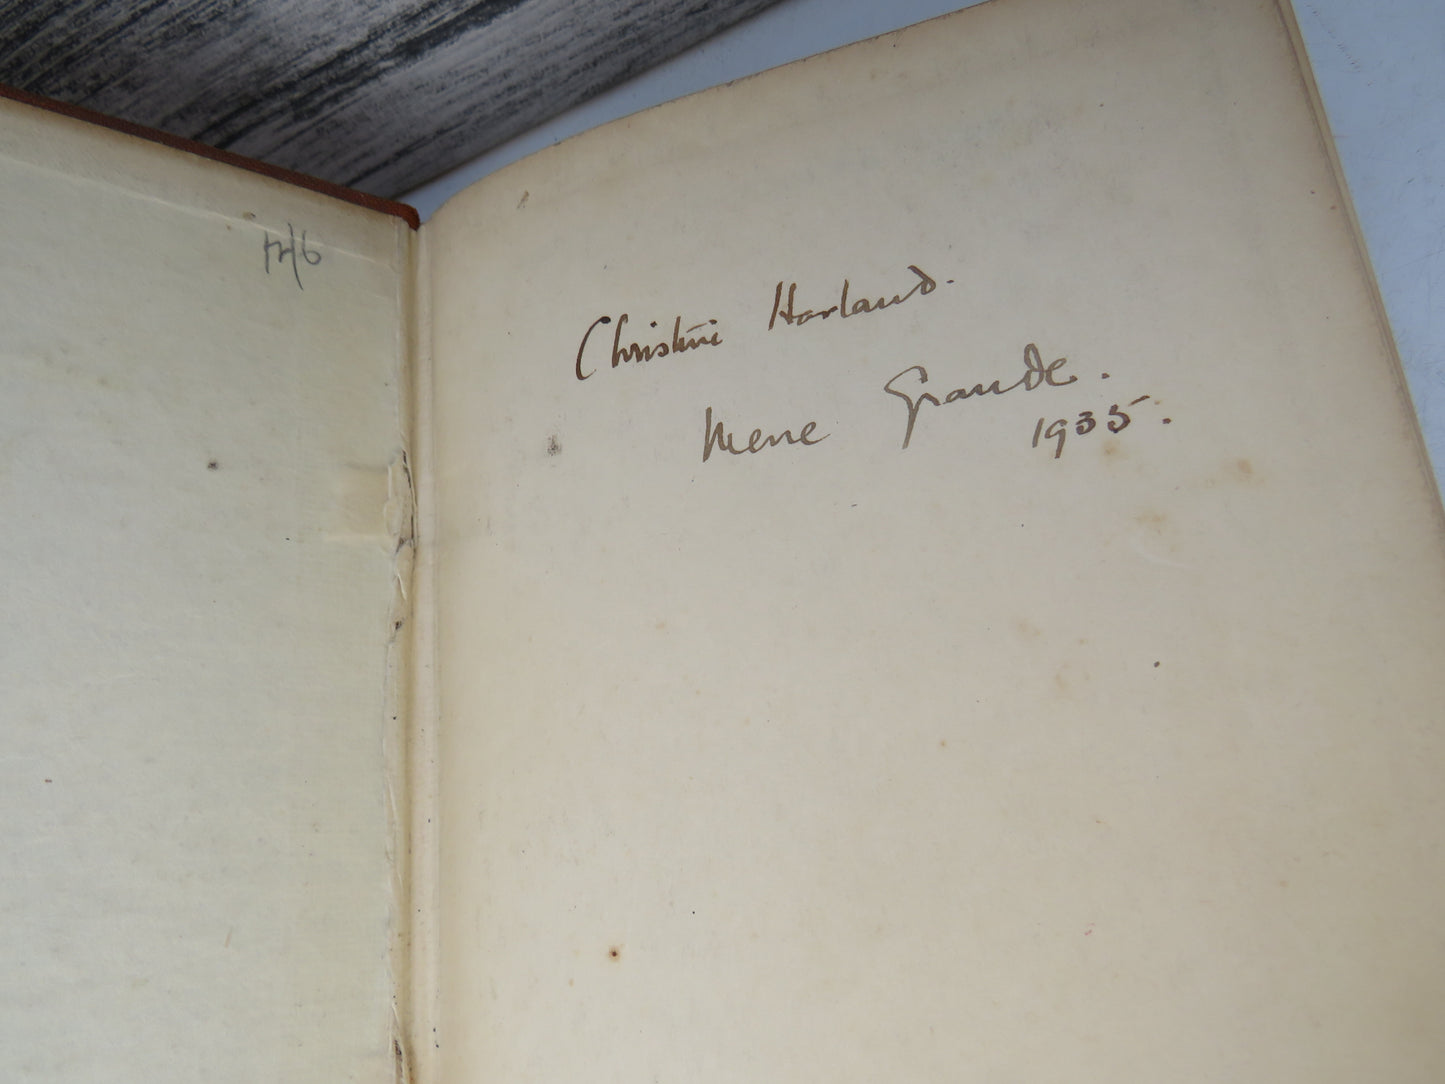 12/6
Christine Harland.
Mene Grande.
1935.